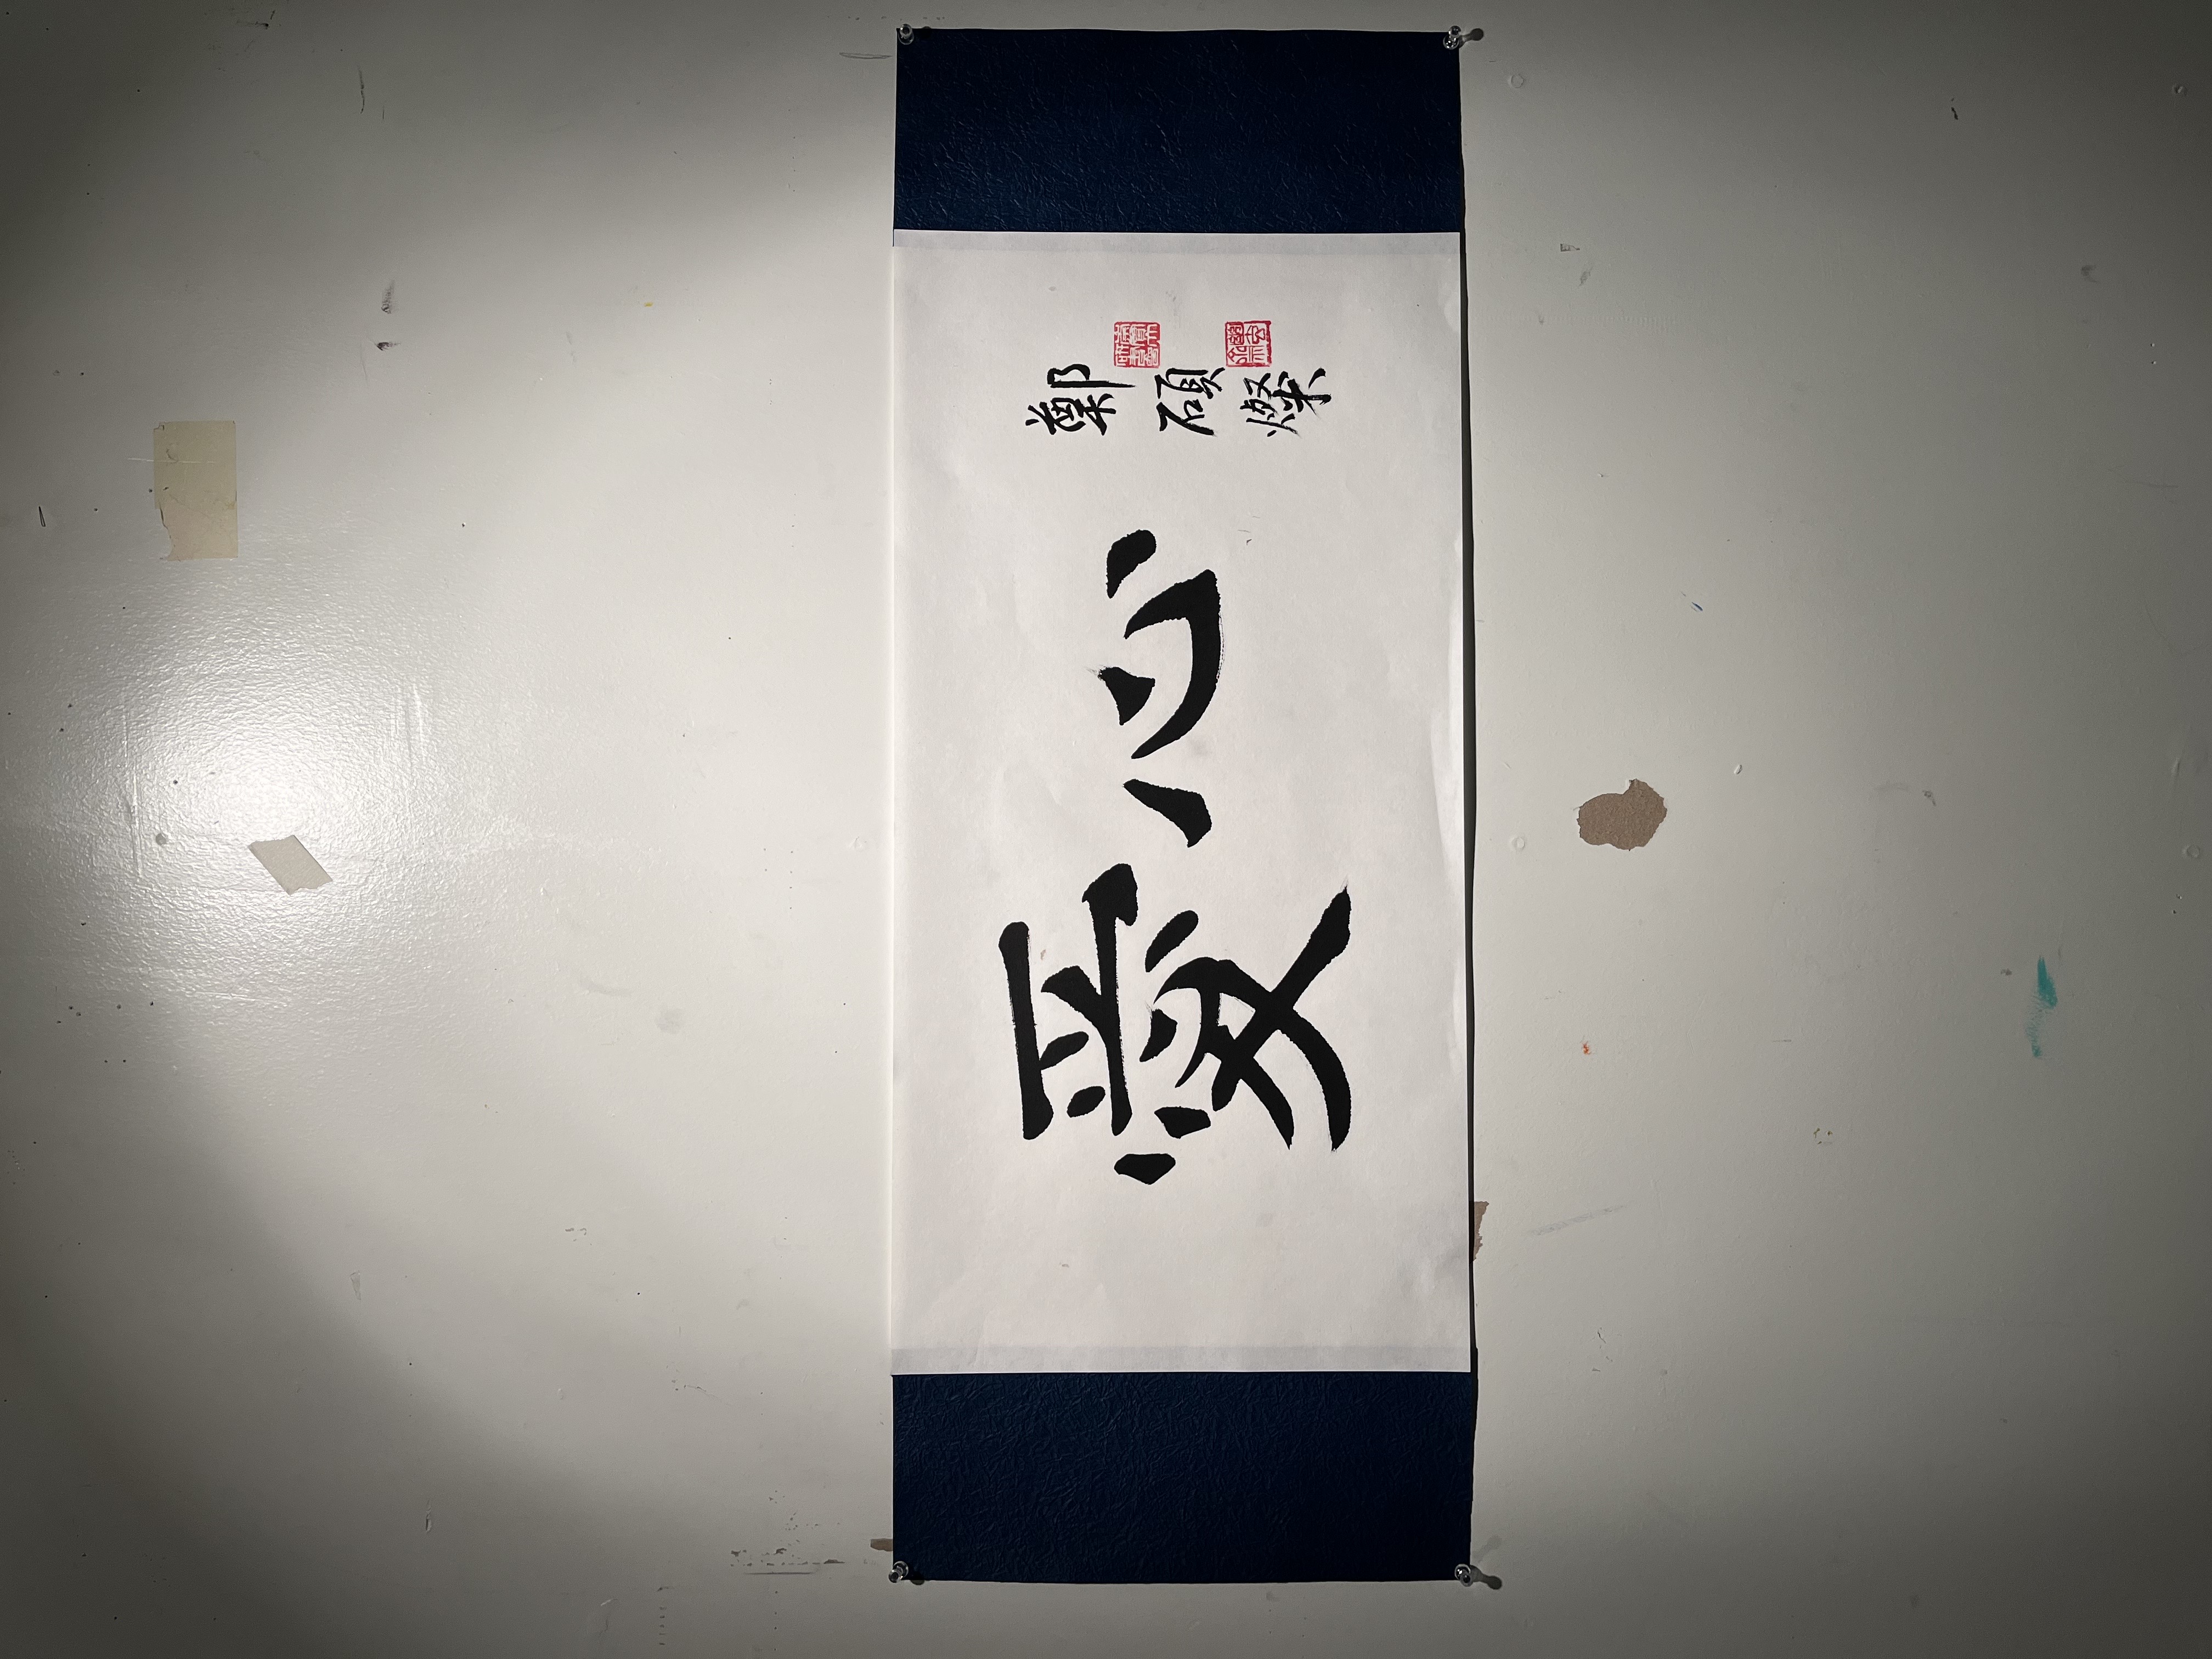 愛心
鄭碩燦